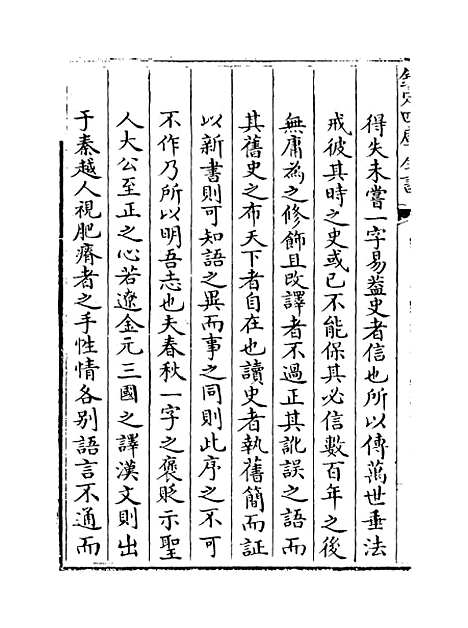 欽定四庫全書
得失未嘗一字易蓋史者信也所以傳萬世垂法
戒彼其時之史或已不能保其必信數百年之後
無庸為之修飾且改譯者不過正其訛誤之語而
其舊史之布天下者自在也讀史者執舊簡而証
以新書則可知語之異而事之同則此序之不可
不作乃所以明吾志也夫春秋一字之褒貶示聖
人大公至正之心若遼金元三國之譯漢文則出
于秦越人視肥瘠者之手性情各别語言不通而